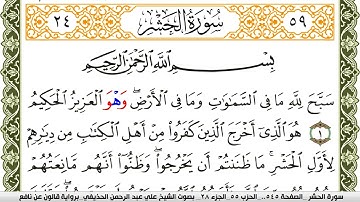 ٢٤ سُورَةُ الْحَشْرِ ٥٩
بِسْمِ اللَّهِ الرَّحْمَٰنِ الرَّحِيمِ
سَبَّحَ لِلَّهِ مَا فِى السَّمَٰوَٰتِ وَمَا فِى الْأَرْضِ وَهْوَ الْعَزِيزُ الْحَكِيمُ
١ هُوَ الَّذِى أَخْرَجَ الَّذِينَ كَفَرُوا مِنْ أَهْلِ الْكِتَٰبِ مِن دِيَٰرِهِمْ
لِأَوَّلِ الْحَشْرِ مَا ظَنَنتُمْ أَن يَخْرُجُوا وَظَنُّوا أَنَّهُم مَّانِعَتُهُمْ
سورة الحشر .. الصفحة ٥٤٥ .. الحزب ٥٥ .. الجزء ٢٨ .. بصوت الشيخ علي عبد الرحمن الحذيفي .. برواية قالون عن نافع